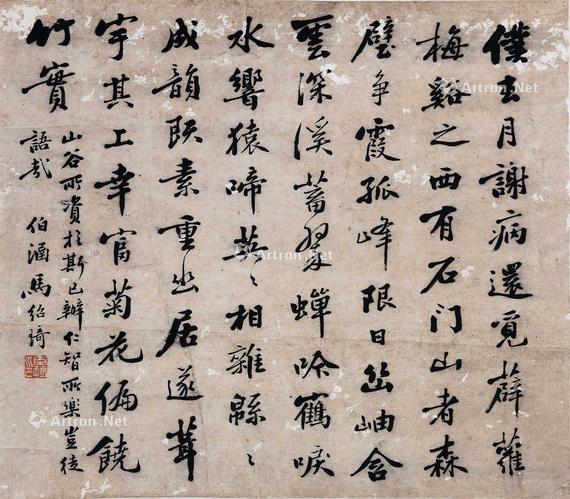 僕去月謝病還覓薜蘿
梅谿之西有石门山者森
壁争霞孤峰限日幽岫含
雲深溪蓄翠蟬吟鶴唳
水響猿啼英〻相雜緜〻
成韻既素重幽居遂葺
宇其工幸富菊花偏饒
竹實
山谷所資於斯已辦仁智所樂豈徒
語哉 伯 馬紹琦
Artron.Net
Artron.Net
Artron.Net
Artron.Net
Artron.Net